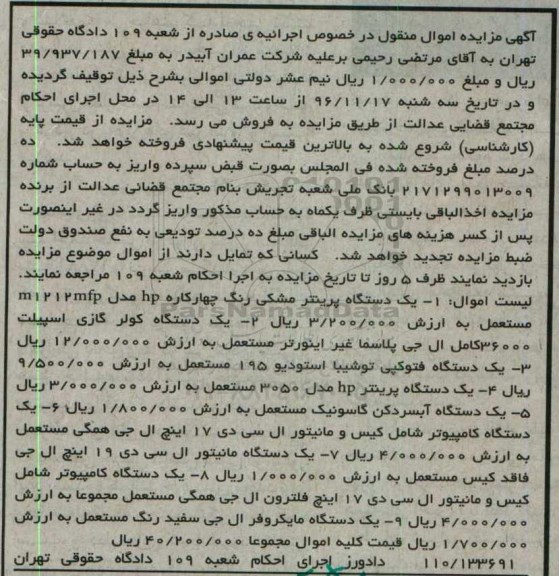 آگهی مزایده اموال منقول در خصوص اجرائیه ی صادره از شعبه ۱۰۹ دادگاه حقوقی
تهران به آقای مرتضی رحیمی برعلیه شرکت عمران آبیدر به مبلغ ۳۹/۹۳۷/۱۸۷
ریال و مبلغ ۱/۰۰۰/۰۰۰ ریال نیم عشر دولتی اموالی بشرح ذیل توقیف گردیده
و در تاریخ سه شنبه ۹۶/۱۱/۱۷ از ساعت ۱۳ الی ۱۴ در محل اجرای احکام
مجتمع قضایی عدالت از طریق مزایده به فروش می رسد. مزایده از قیمت پایه
(کارشناسی) شروع شده به بالاترین قیمت پیشنهادی فروخته خواهد شد. ده
درصد مبلغ فروخته شده فی المجلس بصورت قبض سپرده واریز به حساب شماره
۲۱۷۱۲۹۹۰۱۳۰۰۹ بانک ملی شعبه تجریش بنام مجتمع قضائی عدالت از برنده
مزایده اخذالباقی بایستی ظرف یکماه به حساب مذکور واریز گردد در غیر اینصورت
پس از کسر هزینه های مزایده الباقی مبلغ ده درصد تودیعی به نفع صندوق دولت
ضبط مزایده تجدید خواهد شد. کسانی که تمایل دارند از اموال موضوع مزایده
بازدید نمایند ظرف ۵ روز تا تاریخ مزایده به اجرا احکام شعبه ۱۰۹ مراجعه نمایند.
لیست اموال: ۱- یک دستگاه پرینتر مشکی رنگ چهارکاره hp مدل m۱۲۱۲mfp
مستعمل به ارزش ۳/۲۰۰/۰۰۰ ریال ۲- یک دستگاه کولر گازی اسپیلت
۳۶۰۰۰کامل ال جی پلاسما غیر اینورتر مستعمل به ارزش ۱۲/۰۰۰/۰۰۰ ریال
۳- یک دستگاه فتوکپی توشیبا استودیو ۱۹۵ مستعمل به ارزش ۹/۵۰۰/۰۰۰
ریال ۴- یک دستگاه پرینتر hp مدل ۳۰۵۰ مستعمل به ارزش ۳/۰۰۰/۰۰۰ ریال
۵- یک دستگاه آبسردکن گاسونیک مستعمل به ارزش ۱/۸۰۰/۰۰۰ ریال ۶- یک
دستگاه کامپیوتر شامل کیس و مانیتور ال سی دی ۱۷ اینچ ال جی همگی مستعمل
به ارزش ۴/۰۰۰/۰۰۰ ریال ۷- یک دستگاه مانیتور ال سی دی ۱۹ اینچ ال جی
فاقد کیس مستعمل به ارزش ۱/۰۰۰/۰۰۰ ریال ۸- یک دستگاه کامپیوتر شامل
کیس و مانیتور ال سی دی ۱۷ اینچ فلترون ال جی همگی مستعمل مجموعا به ارزش
۴/۰۰۰/۰۰۰ ریال ۹- یک دستگاه مایکروفر ال جی سفید رنگ مستعمل به ارزش
۱/۷۰۰/۰۰۰ ریال قیمت کلیه اموال مجموعا ۴۰/۲۰۰/۰۰۰ ریال
۱۱۰/۱۳۳۶۹۱ دادورز اجرای احکام شعبه ۱۰۹ دادگاه حقوقی تهران
ParsNamadData